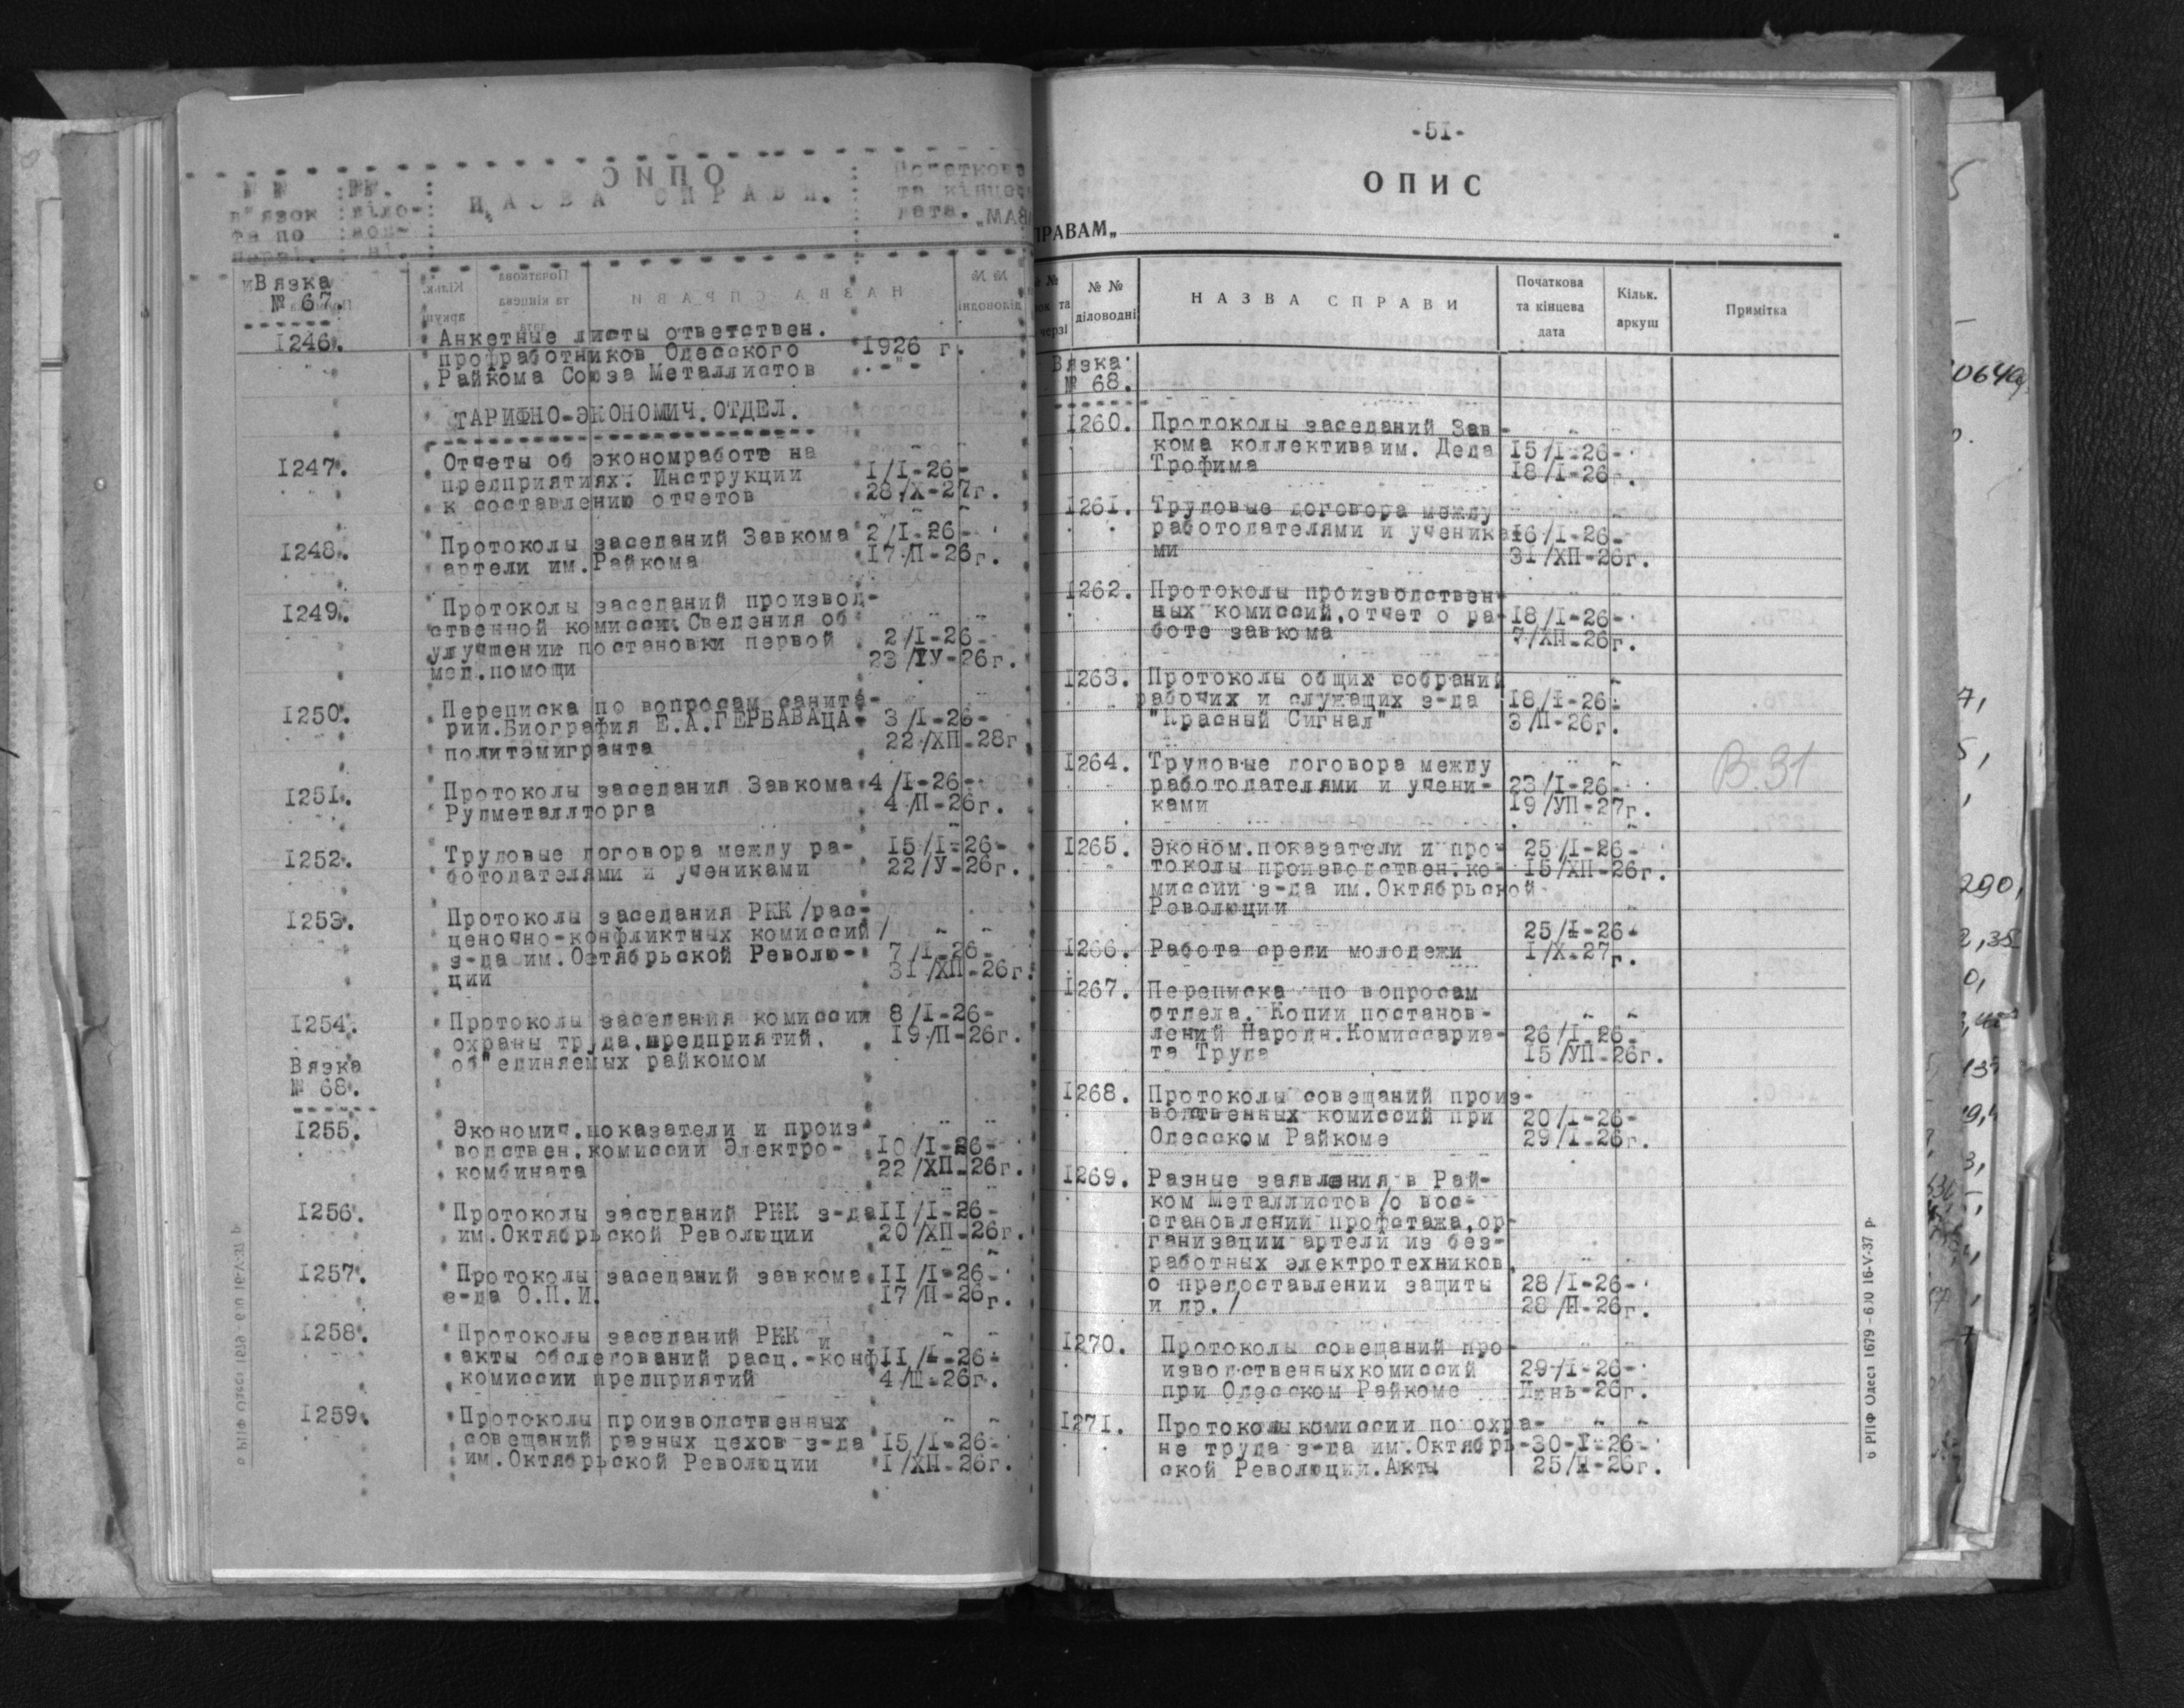 № №
в"язок
та по
черзі.
№№.
діло-
вод-
ні.
НАЗВА СПРАВИ.
Початкова
та кінцева
дата.
Вязка
№ 67.
1246. Анкетные листы ответствен.
профработников Одесского 1926 г.
Райкома Союза Металлистов -"-
ТАРИФНО-ЭКОНОМИЧ.ОТДЕЛ.
1247. Отчеты об экономработе на
предприятиях. Инструкции 1/I-26-
к составлению отчетов 28/X-27г.
1248. Протоколы заседаний Завкома 2/I-26-
артели им.Райкома 17/П-26г.
1249. Протоколы заседаний производ-
ственной комиссии.Сведения об
улучшении постановки первой 2/I-26-
мед.помощи 23/IУ-26г.
1250. Переписка по вопросам санита-
рии.Биография Е.А.ГЕРБАВАЦА 3/I-26-
политэмигранта 22/ХП-28г.
1251. Протоколы заседания Завкома 4/I-26-
Рудметаллторга 4/П-26г.
1252. Трудовые договора между ра- 15/I-26-
ботодателями и учениками 22/У-26г.
1253. Протоколы заседания РКК/рас-
ценочно-конфликтных комиссий/
з-да им.Октябрьской Револю- 7/I-26-
ции 31/ХП-26г.
1254. Протоколы заседания комиссии 8/I-26-
охраны труда,предприятий, 19/П-26г.
об"единяемых райкомом
Вязка
№ 68.
1255. Экономич.показатели и произ-
водствен.комиссии Электро- 10/I-26-
комбината 22/ХП-26г.
1256. Протоколы заседаний РКК з-да 11/I-26-
им.Октябрьской Революции 20/ХП-26г.
1257. Протоколы заседаний завкома 11/I-26-
з-да О.П.И. 17/П-26г.
1258. Протоколы заседаний РКК и
акты обследований расц.-конф. 11/I-26-
комиссии предприятий 4/Ш-26г.
1259. Протоколы производственных
совещаний разных цехов з-да 15/I-26-
им.Октябрьской Революции 1/ХП-26г.
-51-
ОПИС
ПРАВАМ„
№ №
ок та
черзі
№ №
діловодні
НАЗВА СПРАВИ
Початкова
та кінцева
дата
Кільк.
аркуш
Примітка
Вязка
№ 68.
1260. Протоколы заседаний Зав-
кома коллектива им. Деда 15/I-26-
Трофима 18/I-26г.
1261. Трудовые договора между
работодателями и ученика- 16/I-26-
ми 31/ХП-26г.
1262. Протоколы производствен-
ных комиссий,отчет о ра- 18/I-26-
боте завкома 7/ХП-26г.
1263. Протоколы общих собраний
рабочих и служащих з-да 18/I-26-
"Красный Сигнал" 3/П-26г.
1264. Трудовые договора между
работодателями и учени- 23/I-26-
ками 19/УП-27г.
В.31
1265. Эконом.показатели и про- 25/I-26-
токолы производствен.ко- 15/ХП-26г.
миссии з-да им.Октябрьской
Революции
25/I-26-
1266. Работа среди молодежи 1/Х-27г.
1267. Переписка по вопросам
отдела. Копии постанов-
лений Народн.Комиссариа- 26/I-26-
та Труда 15/УП-26г.
1268. Протоколы совещаний произ-
водственных комиссий при 20/I-26-
Одесском Райкоме 29/I-26г.
1269. Разные заявления в Рай-
ком Металлистов/о вос-
становлении профстажа,ор-
ганизации артели из без-
работных электротехников,
о предоставлении защиты 28/I-26-
и др./ 28/П-26г.
1270. Протоколы совещаний про-
изводственных комиссий 29/I-26-
при Одесском Райкоме Июнь-26г.
1271. Протоколы комиссии по охра-
не труда з-да им.Октябрь- 30-I-26-
ской Революции.Акты 25/П-26г.
6 РПФ Одеса 1679 - 600 16-V-37 р.